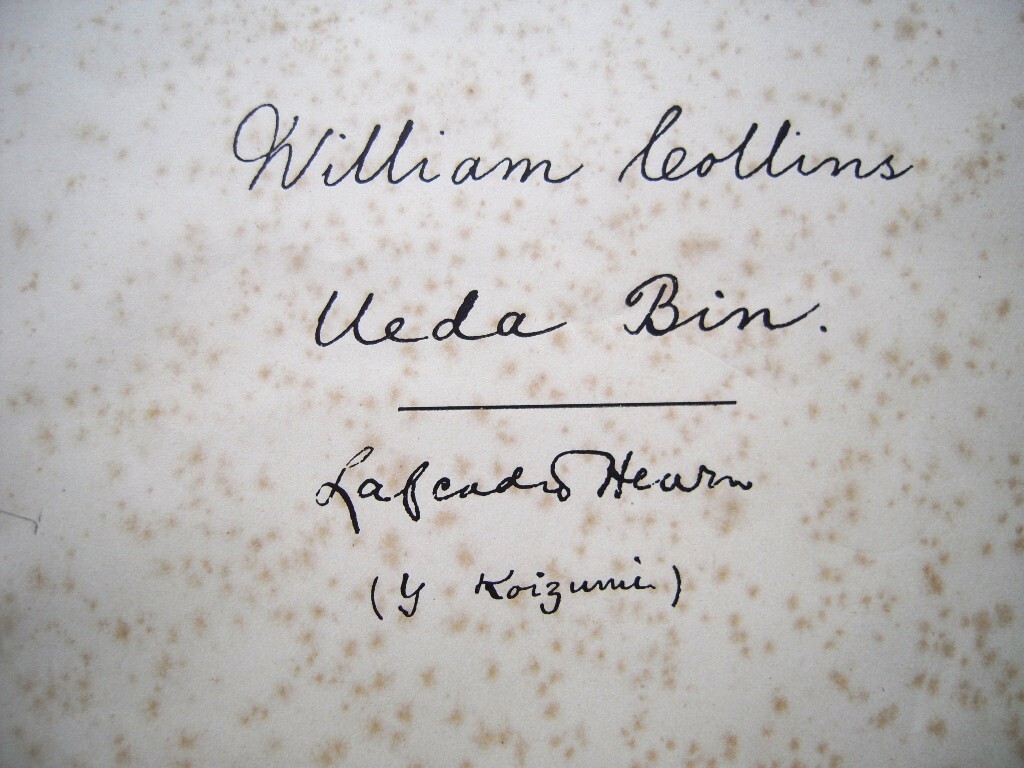 William Collins
Ueda Bin.
Lafcadio Hearn
(Y Koizumi)